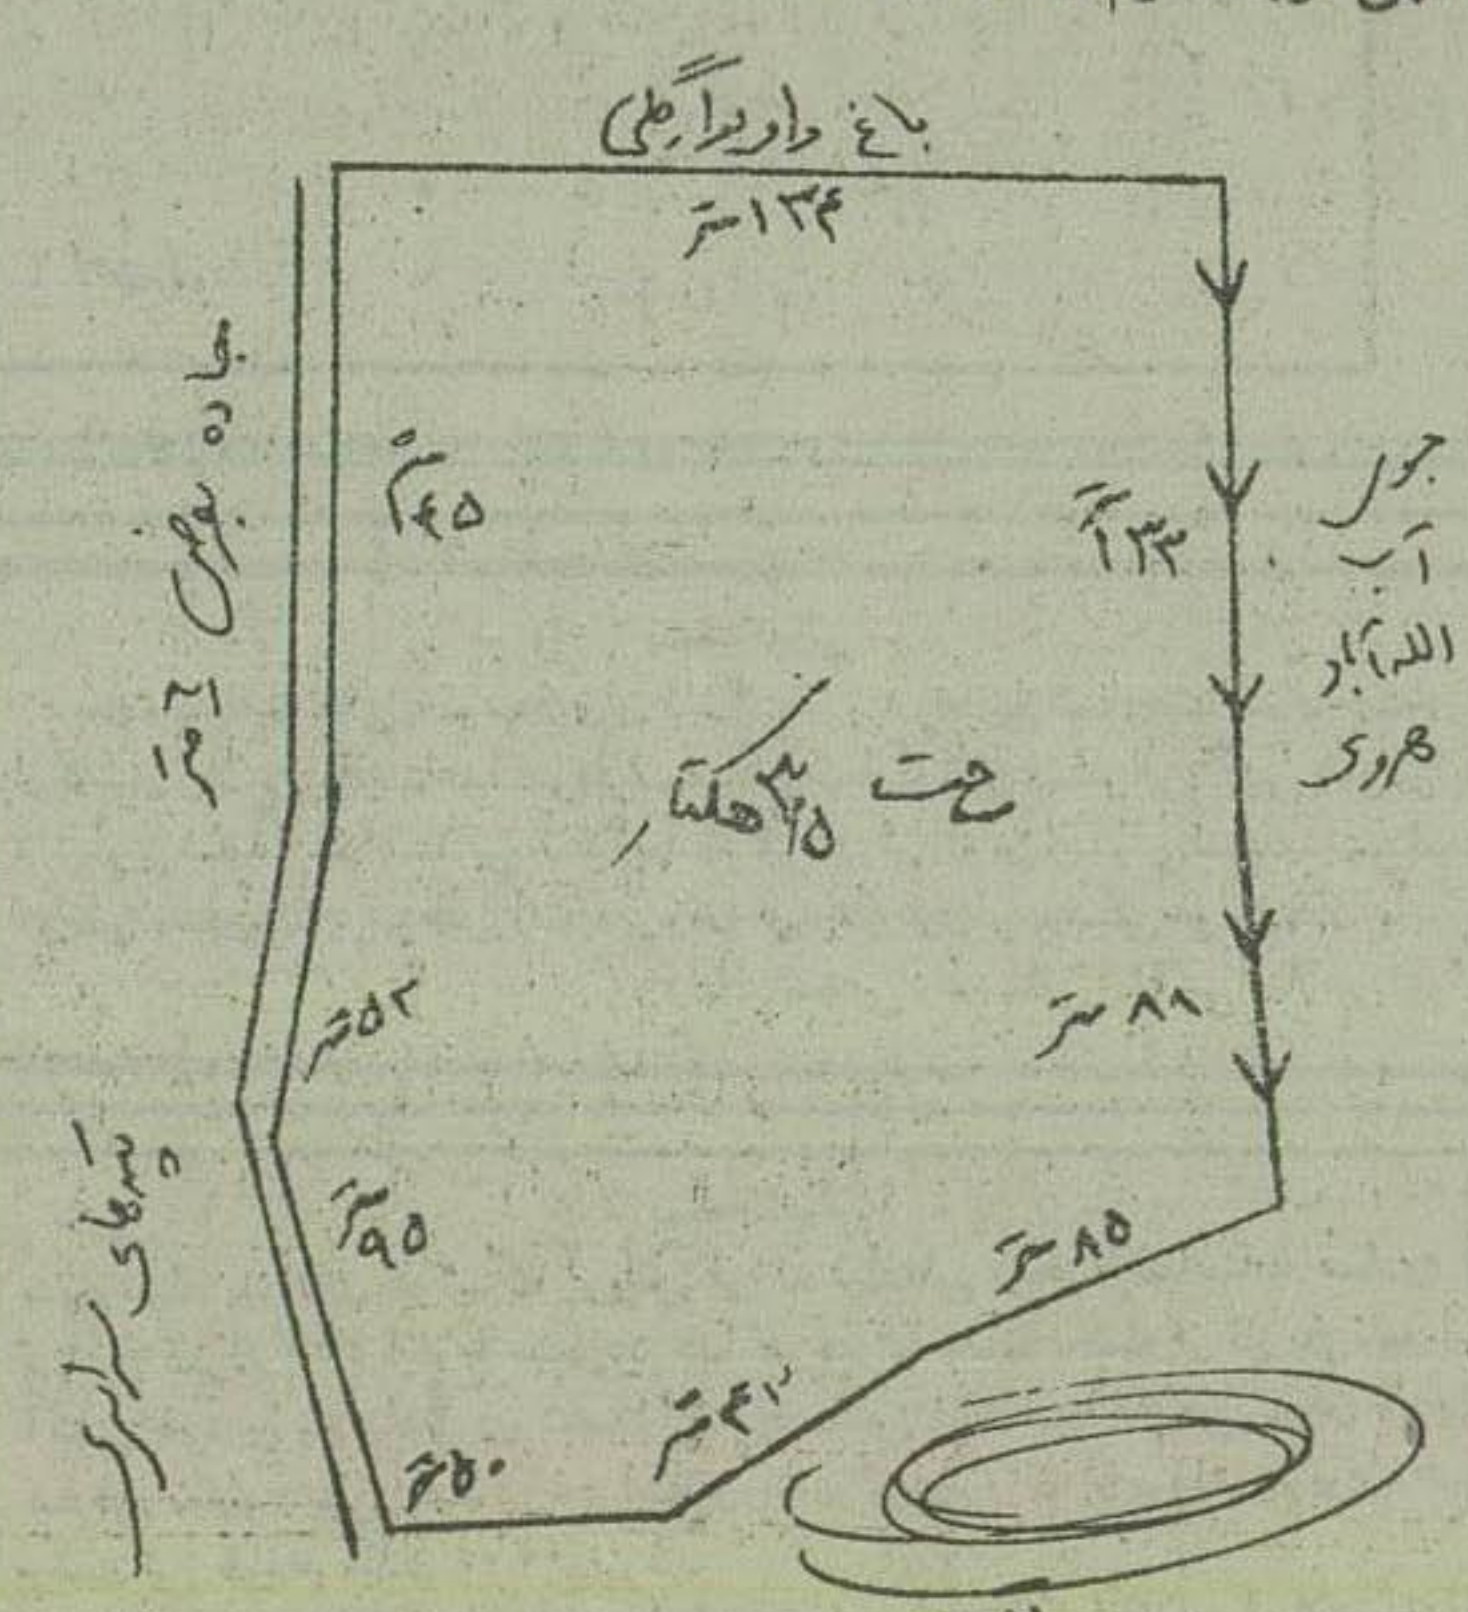 باغ داود آگطی
۱۳۴ متر
جاده بعرض ۶ متر
۴۵ متر
۱۳۳ متر
جوی
آب
الله‌آباد
هروی
مساحت ۳/۵ هکتار
۵۲ متر
۸۸ متر
۹۵ متر
۸۵ متر
۴۲ متر
۵۰ متر